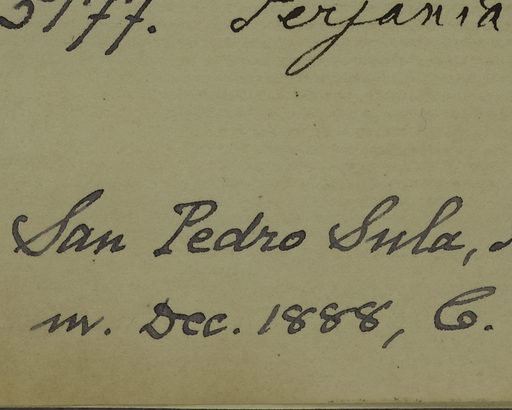 5177. Serjania
San Pedro Sula,
m. Dec. 1888, C.